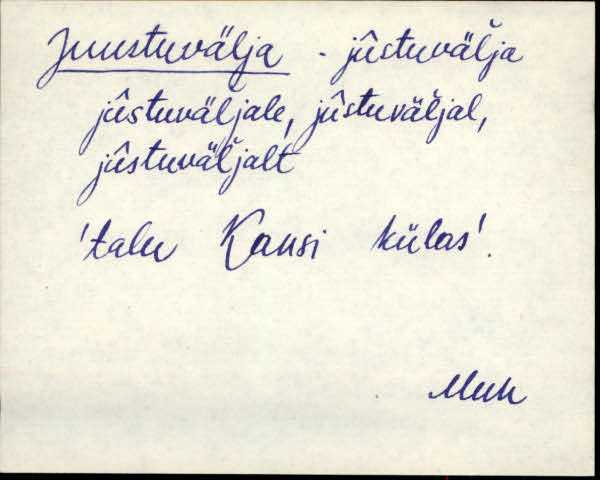 Juustuvälja - jûstuvälja
jûstuväljale, jûstuväljal,
jûstuväljalt
'talu Kansi külas'.
Muh